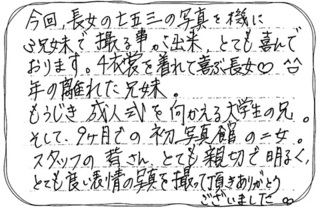 今回、長女の七五三の写真を機に
兄妹で撮る事が出来、とても喜んで
おります。4衣裳を着れて喜ぶ長女♡^^
年の離れた兄妹。
もうじき成人式を向かえる大学生の兄。
そして、9ヶ月での初写真館の二女。
スタッフの皆さん、とても親切で明るく、
とても良い表情の写真を撮って頂きありがとう
ございました∞